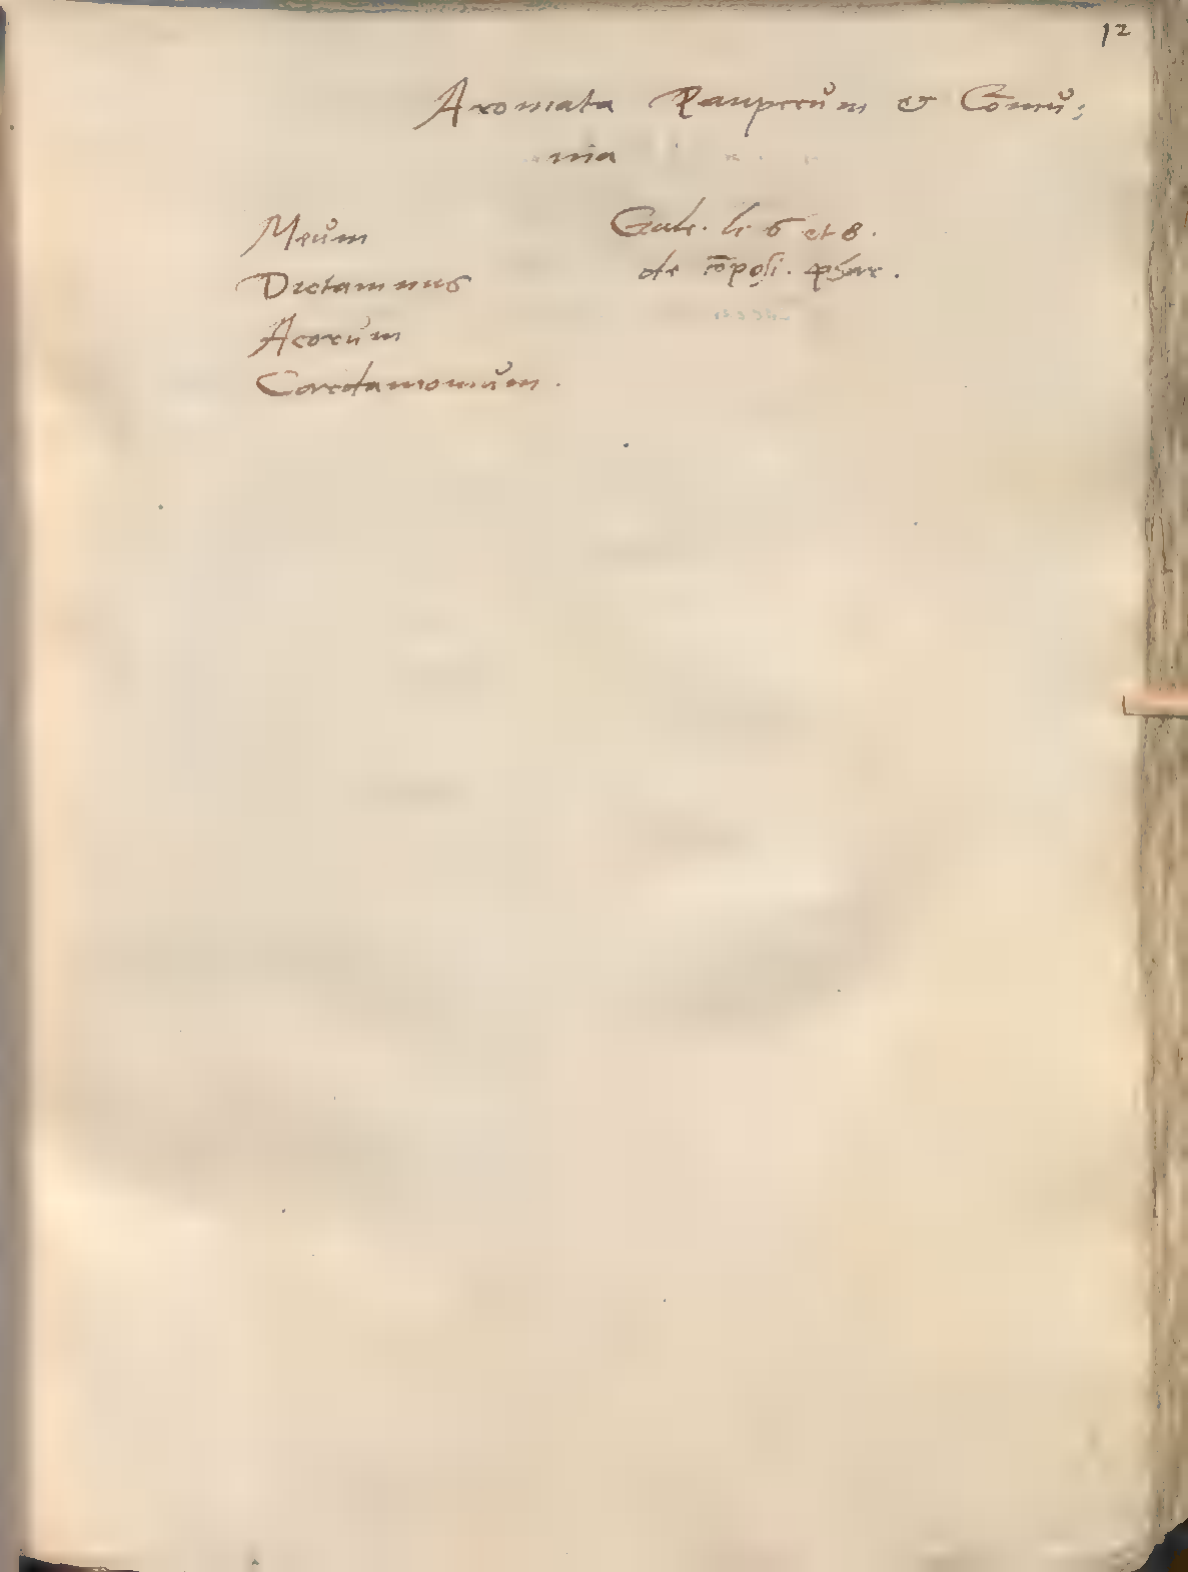 12
Aromata Pauperům & Com̄ů:
nia
Meům
Dictamnus
Acorům
Cardamomům.
Gale. li. 6 et 8.
de cōposi. phar.